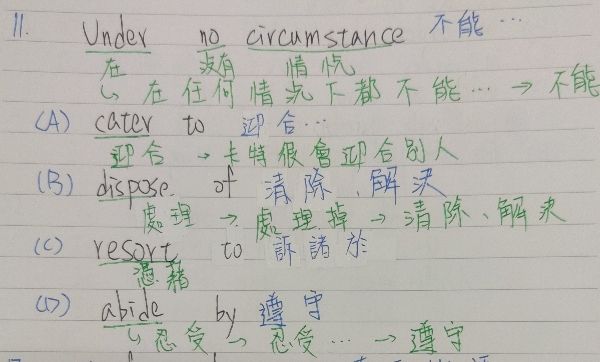 11. Under no circumstance 不能…
在 沒有 情況
↳ 在任何情況下都不能… → 不能
(A) cater to 迎合…
迎合 → 卡特很會迎合別人
(B) dispose of 清除、解決
處理 → 處理掉 → 清除、解決
(C) resort to 訴諸於
憑藉
(D) abide by 遵守
↳ 忍受 → 忍受… → 遵守